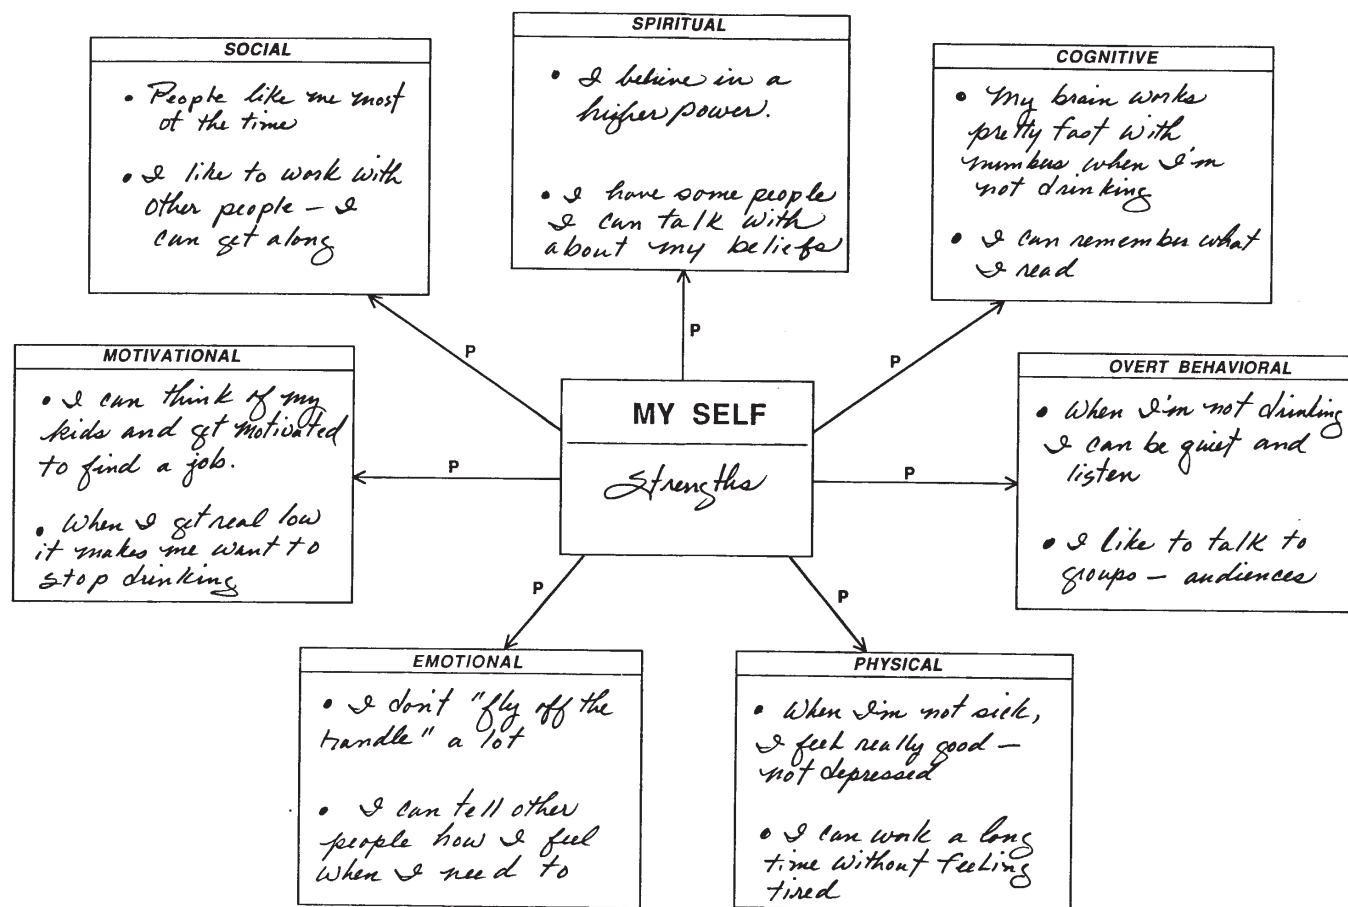 SOCIAL
• People like me most
of the time
• I like to work with
other people – I
can get along
SPIRITUAL
• I believe in a
higher power.
• I have some people
I can talk with
about my beliefs
COGNITIVE
• My brain works
pretty fast with
numbers when I'm
not drinking
• I can remember what
I read
MOTIVATIONAL
• I can think of my
kids and get motivated
to find a job.
• When I get real low
it makes me want to
stop drinking
MY SELF
Strengths
OVERT BEHAVIORAL
• When I'm not drinking
I can be quiet and
listen
• I like to talk to
groups – audiences
P
P
P
P
P
P
P
EMOTIONAL
• I don't "fly off the
handle" a lot
• I can tell other
people how I feel
when I need to
PHYSICAL
• When I'm not sick,
I feel really good –
not depressed
• I can work a long
time without feeling
tired